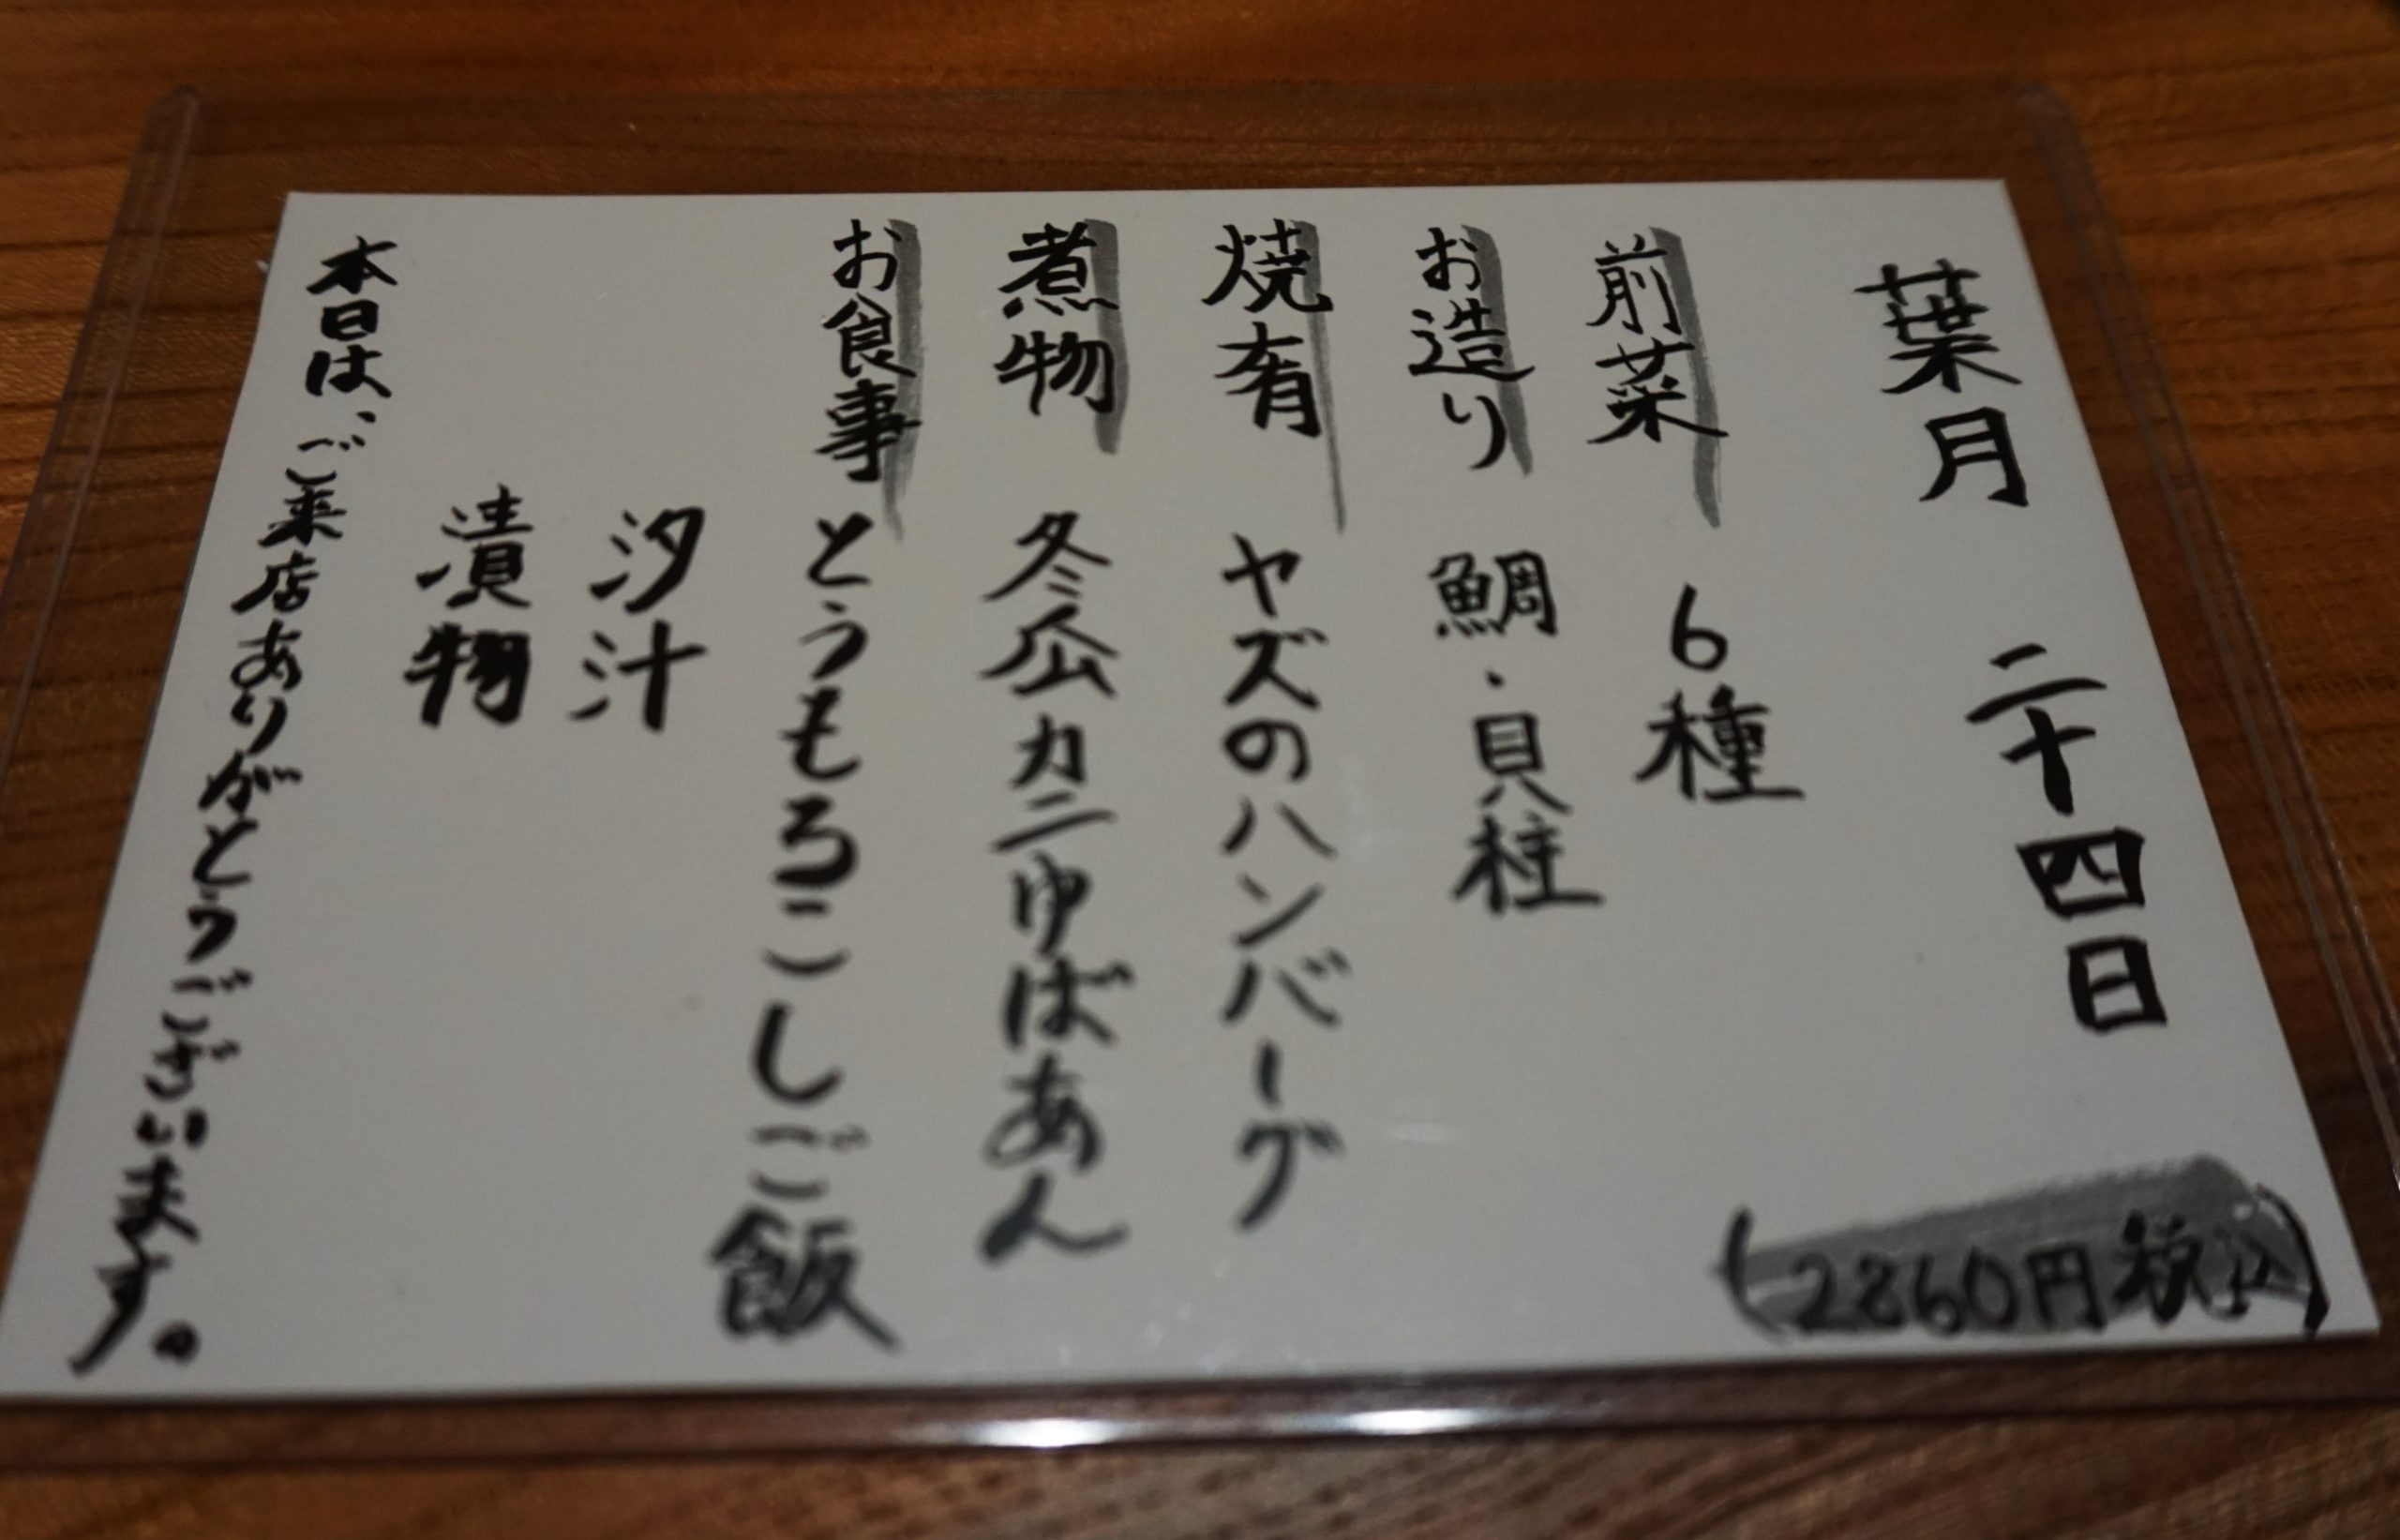 葉月 二十四日
(2860円税込)
前菜 6種
お造り 鯛・貝柱
焼肴 ヤズのハンバーグ
煮物 冬瓜カニゆばあん
お食事 とうもろこしご飯
汐汁
漬物
本日は、ご来店ありがとうございます。